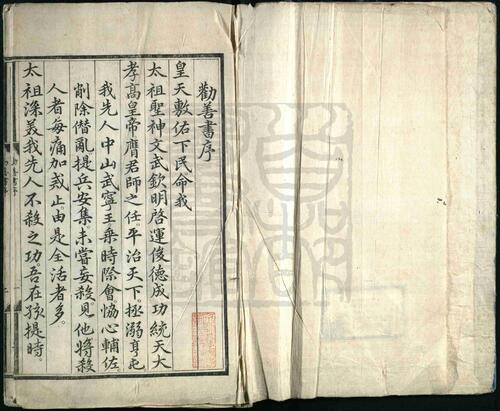 勸善書序
皇天敷佑下民命我
太祖聖神文武欽明啓運俊德成功統天大
孝高皇帝膺君師之任平治天下拯溺亨屯
我先人中山武寧王乗時際會恊心輔佐
削除僭亂提兵安集未嘗妄殺見他將殺
人者每痛加戒止由是全活者多
太祖深羙我先人不殺之功吾在孩提時